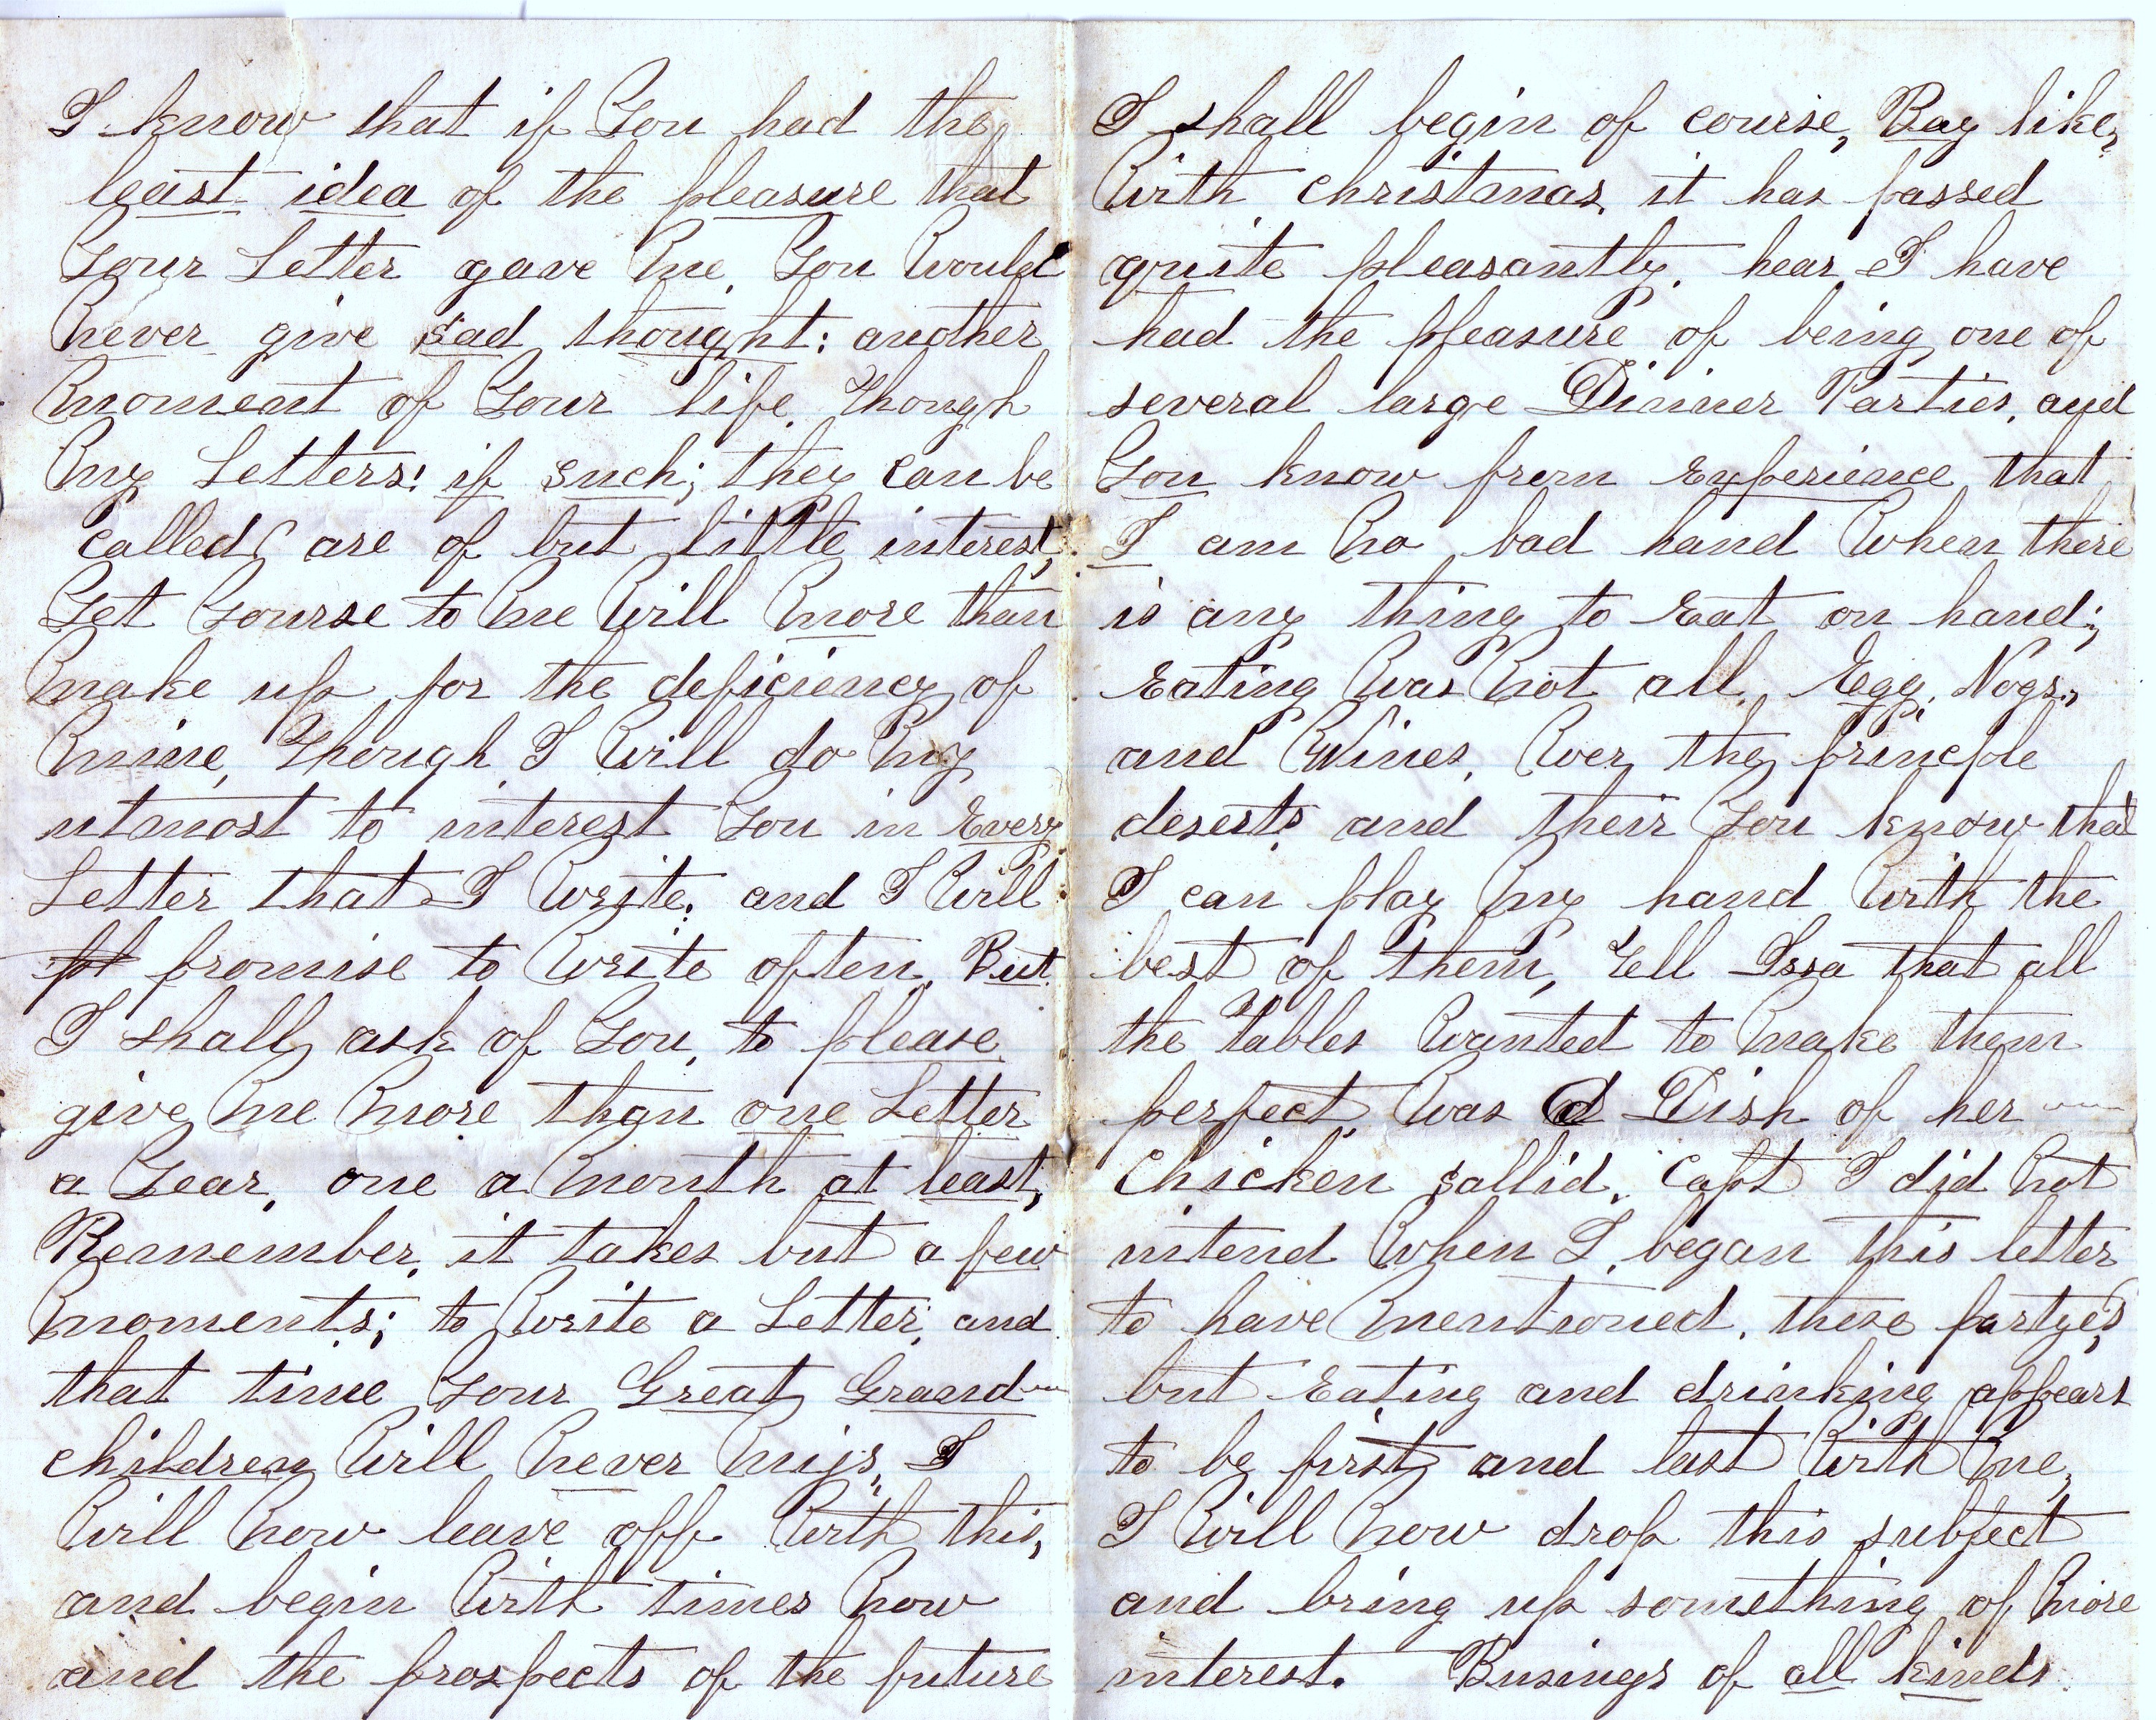 I know that if You had the
least idea of the pleasure that
Your Letter gave Me, You Would
Never give sad thought: another
Moment of Your life, Though
My Letters! if such; they can be
called, are of but little interest,
Yet Yourse to Me Will More than
Make up for the deficiency of
Mine, Though I Will do My
utmost to interest You in Every
Letter that I Write. and I Will
pt promise to Write often, But
I shall ask of You, to please
give Me More than one Letter
a Year, one a Month at least,
Remember, it takes but a few
Moments; to Write a Letter, and
that time Your Great Grand
children Will Never Miss, I
Will Now leave off With this,
and begin With times Now
and the prospects of the future
I shall begin of course, Boy like,
With christmas, it has passed
quite pleasantly, hear I have
had the pleasure of being one of
several large Dinner Parties, and
You know from Experience that
I am No bad hand When there
is any thing to Eat on hand;
Eating Was Not all, Egg, Nogs,
and Wines, Wer the principle
deserts and their You know that
I can play My hand With the
best of them, Tell Issa that all
the tables Wanted to Make them
perfect Was a Dish of her
Chicken sallid, Capt I did Not
intend When I, began this letter
to have Mentioned, these partyes,
but Eating and drinking appears
to be first and last With Me,
I Will Now drop this subject
and bring up something of More
interest. Business of all kinds